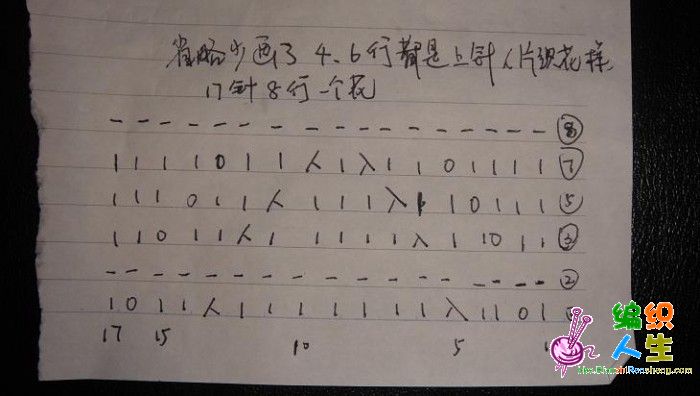 省略少画了 4、6行都是上针 (片织花样
17针8行一个花
— — — — — — — — — — — — — — — — — ⑧
1 1 1 1 0 1 1 人 1 入 1 1 0 1 1 1 1 ⑦
1 1 1 0 1 1 人 1 1 1 入 1 1 0 1 1 1 ⑤
1 1 0 1 1 人 1 1 1 1 1 入 1 1 0 1 1 ③
— — — — — — — — — — — — — — — — — ②
1 0 1 1 人 1 1 1 1 1 1 1 入 1 1 0 1
17 15 10 5
编织
人生